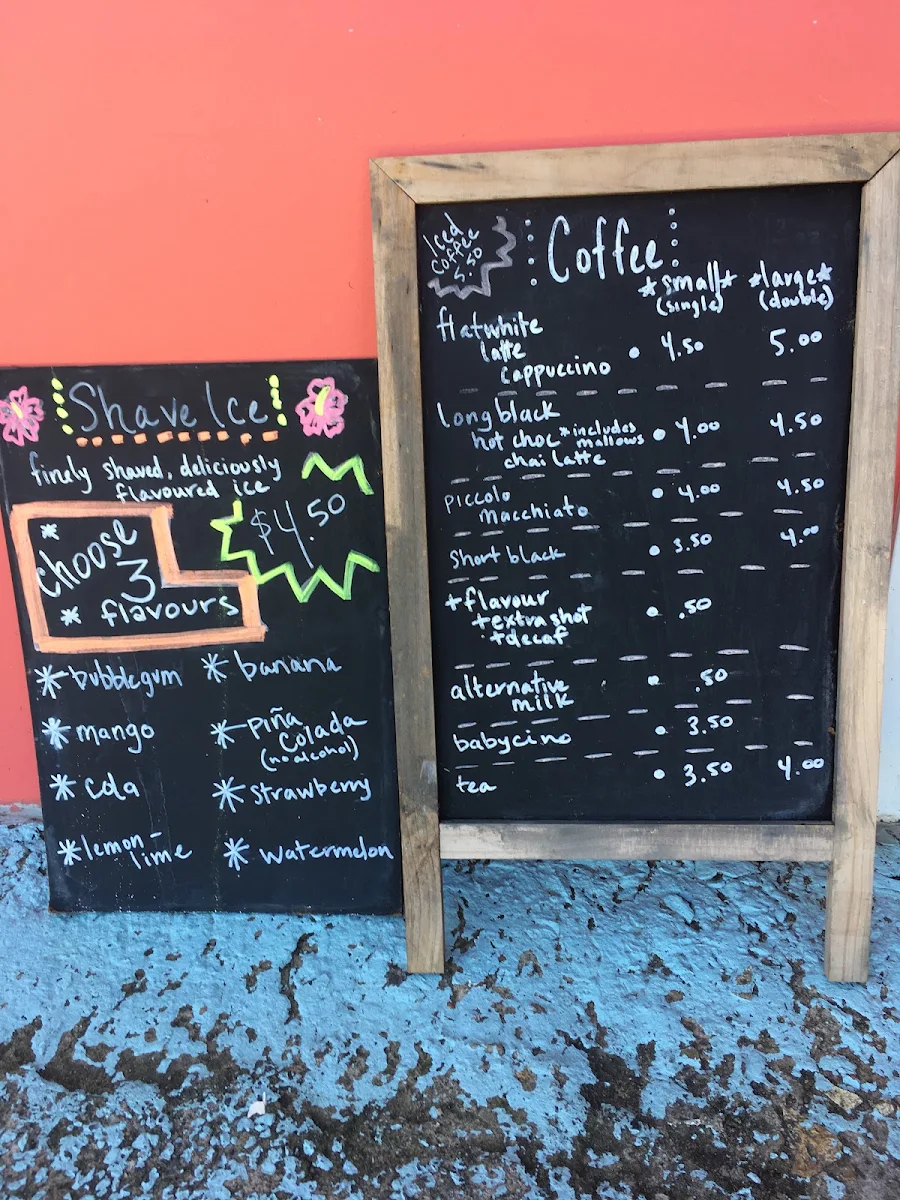 Shave Ice
finely shaved, deliciously
flavoured ice
$4.50
* choose
3
* flavours
* bubblegum
* banana
* mango
* Piña
Colada
(no alcohol)
* cola
* strawberry
* lemon-
lime
* watermelon
Iced
Coffee
5.50
Coffee
*small* *large*
(single) (double)
flatwhite
latte • 4.50 5.00
cappuccino
long black
hot choc *includes mallows • 4.00 4.50
chai latte
piccolo • 4.00 4.50
macchiato
short black • 3.50 4.00
+flavour
+extra shot • .50
+decaf
alternative • .50
milk
babycino • 3.50
tea • 3.50 4.00